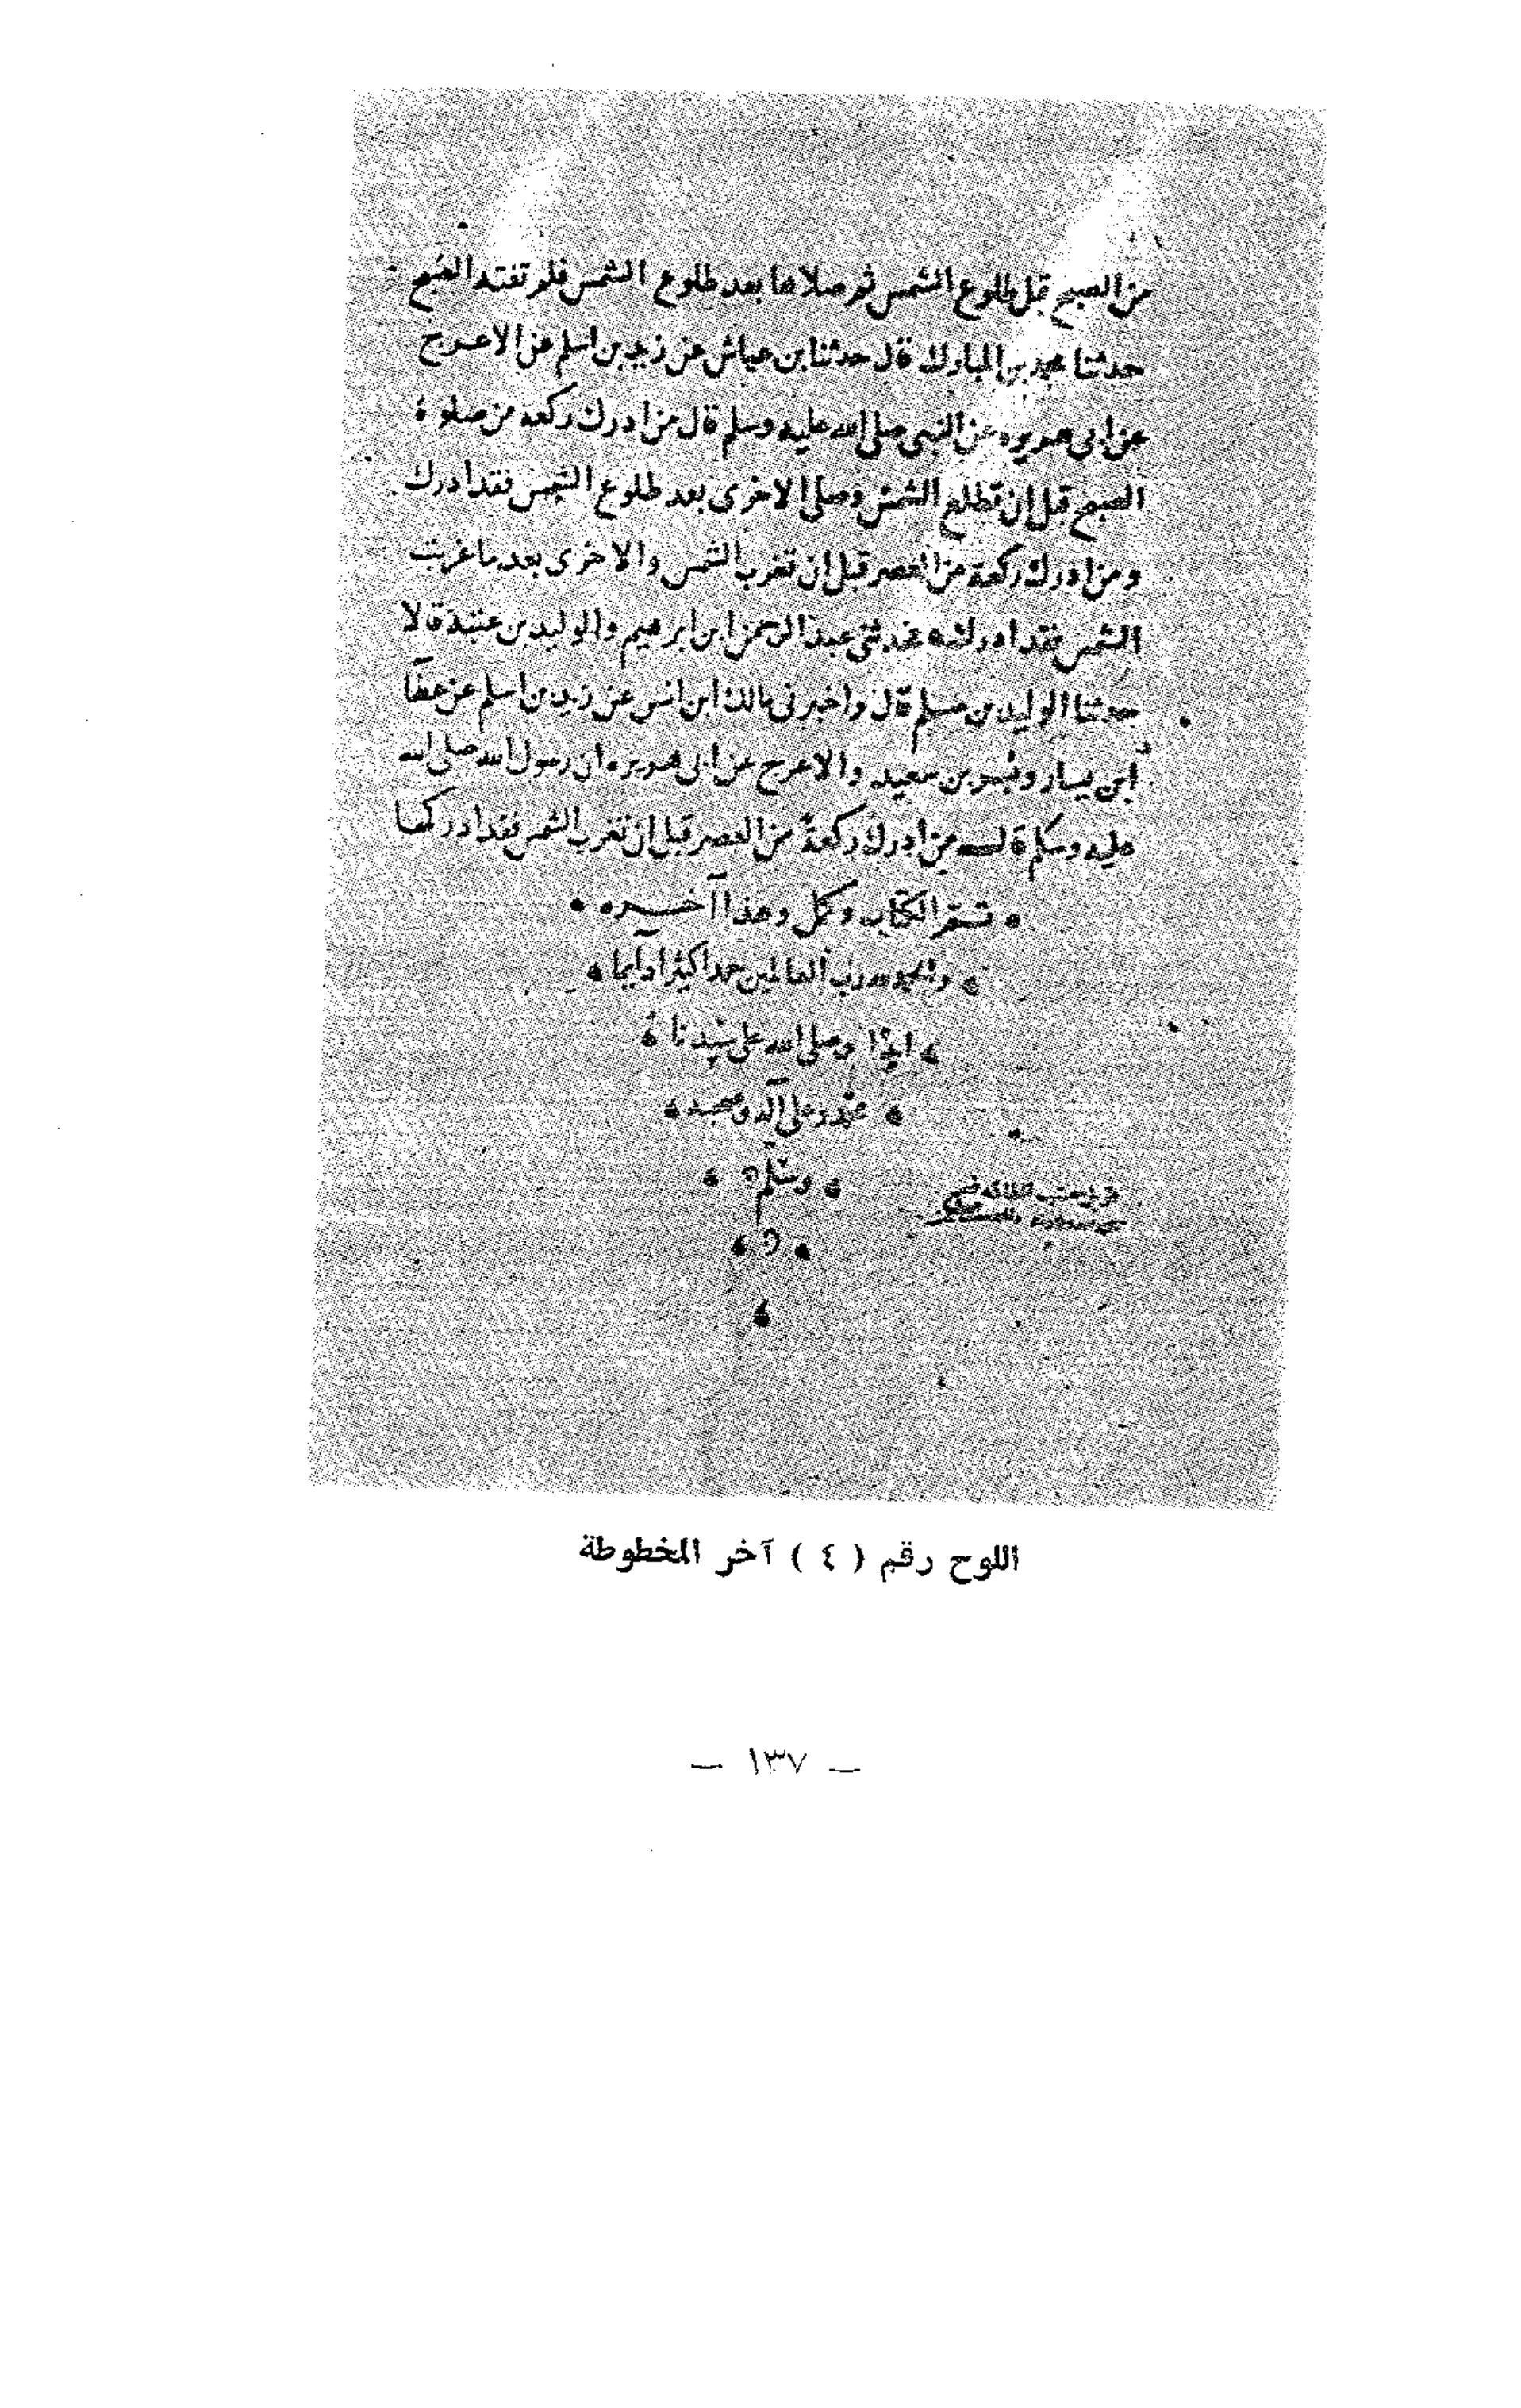 من الصبح قبل طلوع الشمس ثم صلاها بعد طلوع الشمس فلم تفته الصبح
حدثنا محمد بن المبارك قال حدثنا ابن عياش عن زيد بن اسلم عن الاعرج
عن ابى هريرة عن النبى صلى الله عليه وسلم قال من ادرك ركعة من صلوة
الصبح قبل ان تطلع الشمس وصلى الاخرى بعد طلوع الشمس فقد ادرك
ومن ادرك ركعة من العصر قبل ان تغرب الشمس والاخرى بعد ما غربت
الشمس فقد ادرك حدثنى عبد الرحمن ابن ابرهيم والوليد بن عتبة قالا
حدثنا الوليد بن مسلم قال واخبرنى مالك ابن انس عن زيد بن اسلم عن عطآ
ابن يسار وبسر بن سعيد والاعرج عن ابى هريره ان رسول الله صلى الله
عليه وسلم قال من ادرك ركعة من العصر قبل ان تغرب الشمس فقد ادركها
تم الكتاب وكمل وهذا آخره
والحمد لله رب العالمين حمدا كثيرا دآيما
ابدًا وصلى الله على سيدنا
محمد وعلى آله وصحبه
وسلم
اللوح رقم ( ٤ ) آخر المخطوطة
— ١٣٧ —